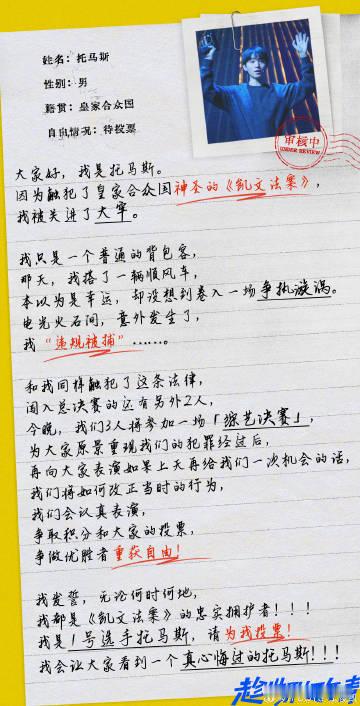 姓名：托马斯
性别：男
籍贯：皇家合众国
自由情况：待投票
审核中
UNDER REVIEW
大家好，我是托马斯。
因为触犯了皇家合众国神圣的《凯文法案》，
我被关进了大牢。
我只是一个普通的背包客，
那天，我搭了一辆顺风车，
本以为是幸运，却没想到卷入一场争执漩涡。
电光火石间，意外发生了，
我“违规被捕”……。
和我同样触犯了这条法律，
闯入总决赛的还有另外2人，
今晚，我们3人将参加一场「综艺决赛」，
为大家原景重现我们的犯罪经过后，
再向大家表演如果上天再给我们一次机会的话，
我们将如何改正当时的行为，
我们会认真表演，
争取积分和大家的投票，
争做优胜者重获自由！
我发誓，无论何时何地，
我都是《凯文法案》的忠实拥护者！！！
我是1号选手托马斯，请为我投票！
我会让大家看到一个真心悔过的托马斯！！！